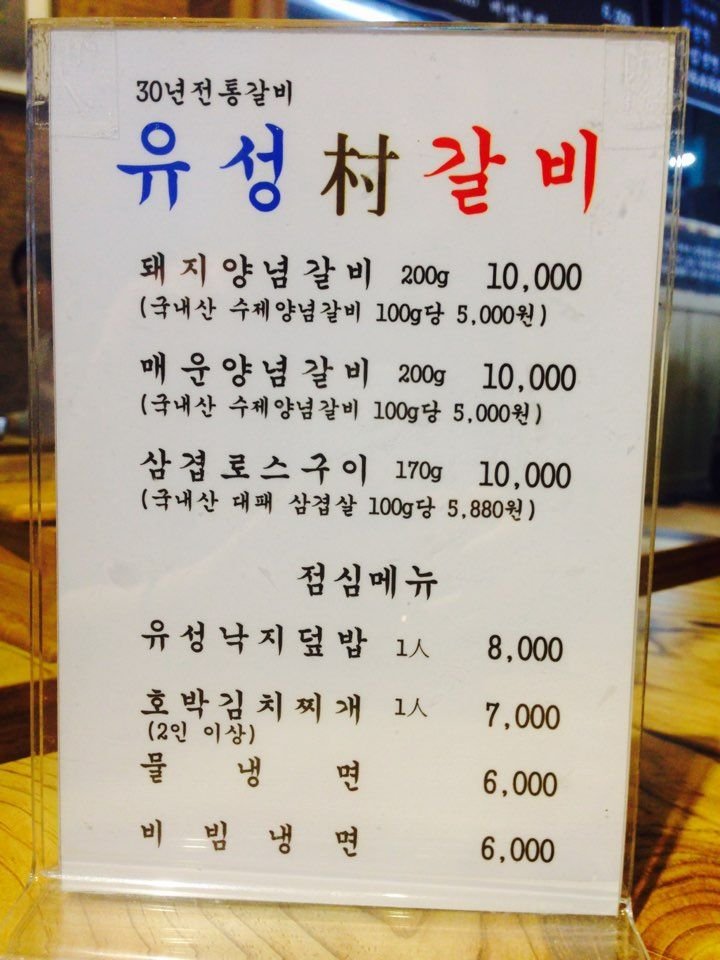 30년전통갈비
유성村갈비
돼지양념갈비 200g 10,000
(국내산 수제양념갈비 100g당 5,000원)
매운양념갈비 200g 10,000
(국내산 수제양념갈비 100g당 5,000원)
삼겹로스구이 170g 10,000
(국내산 대패 삼겹살 100g당 5,880원)
점심메뉴
유성낙지덮밥 1人 8,000
호박김치찌개 1人 7,000
(2인 이상)
물냉면 6,000
비빔냉면 6,000